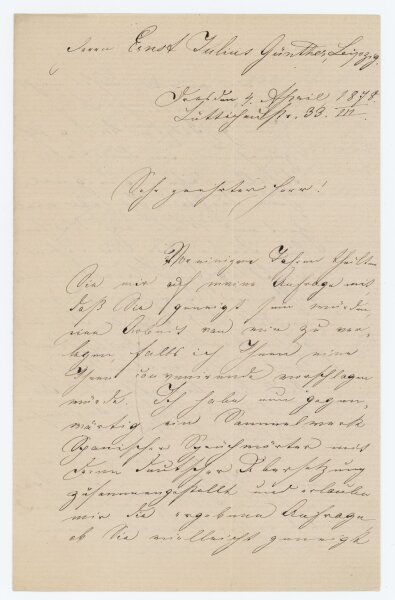 Herrn Ernst Julius Günther, Leipzig.
Dresden 4. April 1878.
Lüttichaustr. 33. III.
Sehr geehrter Herr!
Vor einigen Jahren theilten
Sie mir auf meine Anfrage mit
daß Sie geneigt sein würden
eine Arbeit von mir zu ver-
legen, falls ich Ihnen eine
Ihnen convenirende vorschlagen
würde. Ich habe nun gegen-
wärtig ein Sammelwerk
Spanischer Sprichwörter mit
deutscher Übersetzung
zusammengestellt und erlaube
mir die ergebene Anfrage,
ob Sie vielleicht geneigt